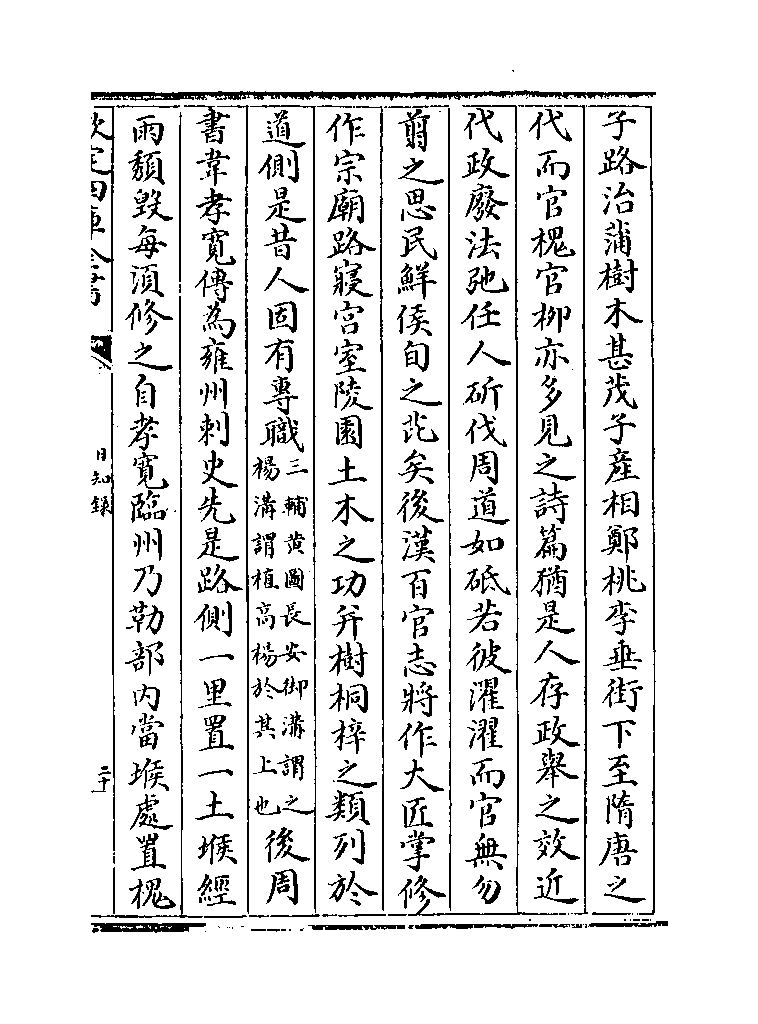 子路治蒲樹木甚茂子產相鄭桃李垂街下至隋唐之
代而官槐官柳亦多見之詩篇猶是人存政舉之效近
代政廢法弛任人斫伐周道如砥若彼濯濯而官無勿
翦之思民鮮侯旬之芘矣後漢百官志將作大匠掌修
作宗廟路寢宮室陵園土木之功并樹桐梓之類列於
道側是昔人固有專職三輔黄圖長安御溝謂之楊溝謂植高楊於其上也後周
書韋孝寬傳為雍州刺史先是路側一里置一土堠經
雨頽毀每須修之自孝寬臨州乃勒部内當堠處置槐
欽定四庫全書
日知錄
二十